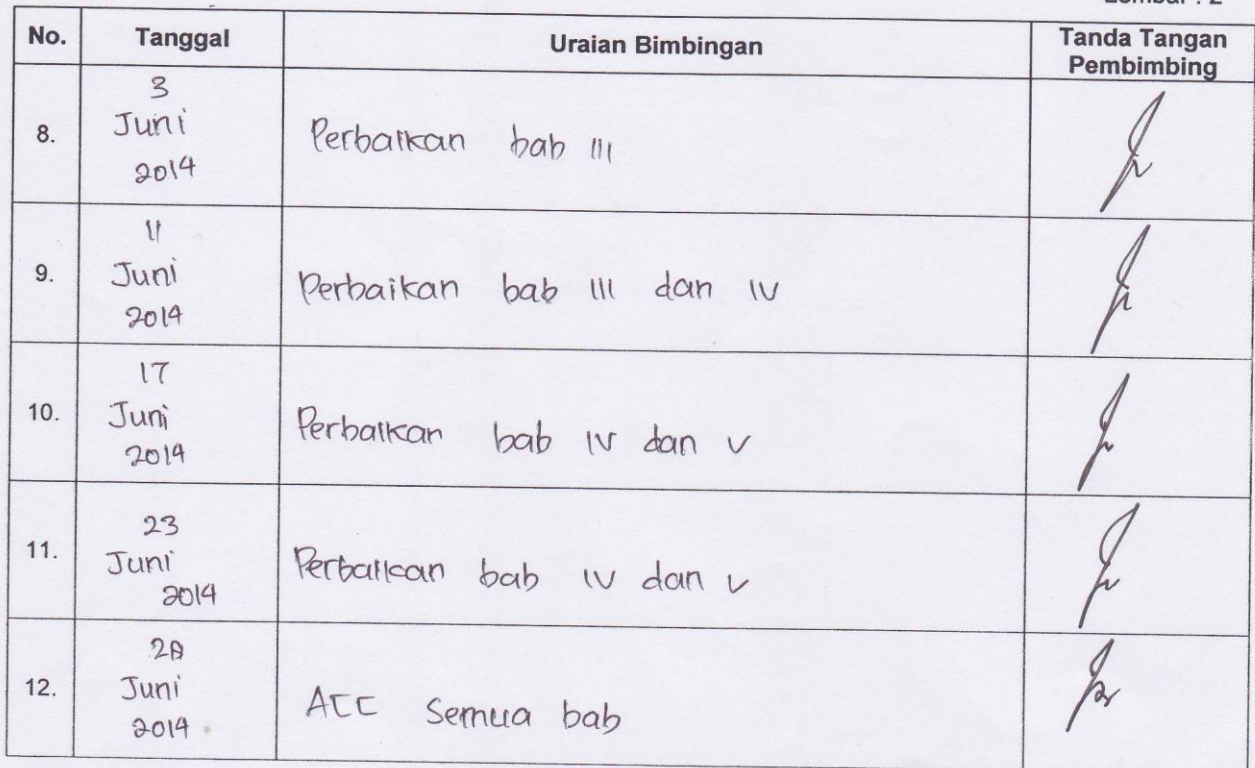 Lembar : 2
No. Tanggal Uraian Bimbingan Tanda Tangan Pembimbing
8. 3 Juni 2014 Perbaikan bab III
9. 11 Juni 2014 Perbaikan bab III dan IV
10. 17 Juni 2014 Perbaikan bab IV dan V
11. 23 Juni 2014 Perbaikan bab IV dan V
12. Juni 2014 ACC Semua bab